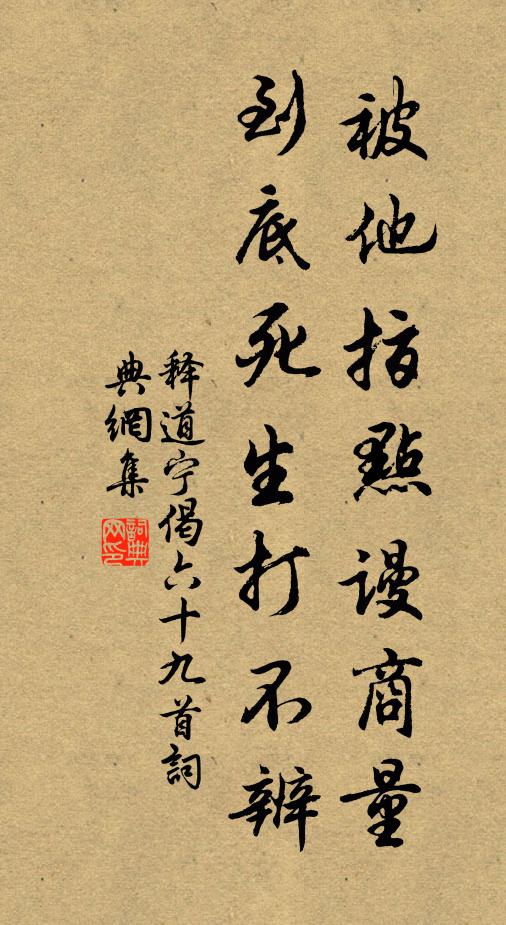 被他指點謾商量
到底死生打不辨
释道宁偈六十九首詞
典網集
詞典网印